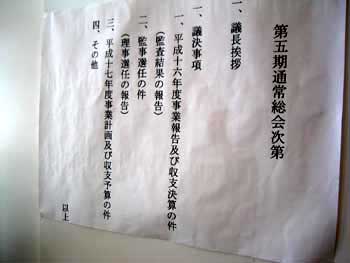 第五期通常総会次第
一、議長挨拶
一、議決事項
一、平成十六年度事業報告及び収支決算の件
（監査結果の報告）
二、監事選任の件
（理事選任の報告）
三、平成十七年度事業計画及び収支予算の件
四、その他
以上